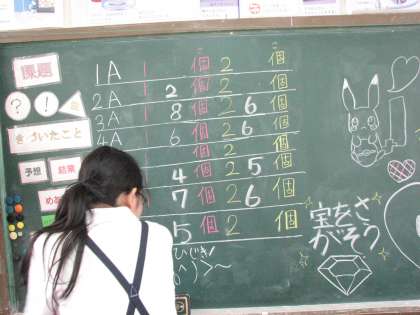 課題
? !
きづいたこと
予想 結果
1A 1個 2個
2A 2個 2個
3A 8個 26個
4A 6個 26個
個 2個
4個 25個
7個 26個
5個 2個
宝をさ
がそう